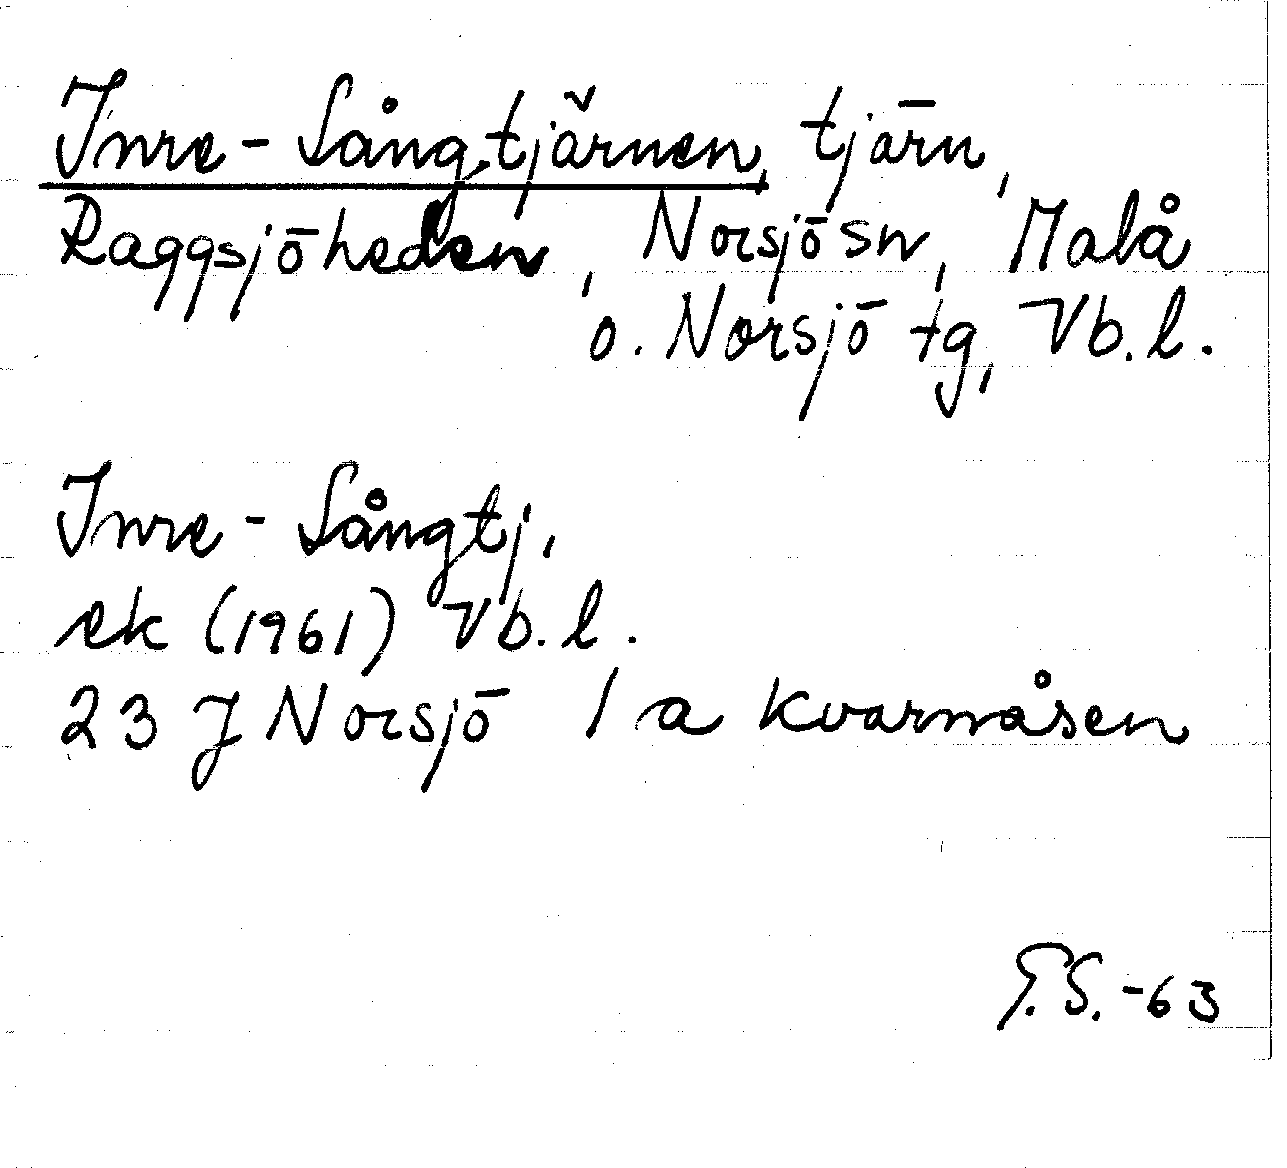 Inre-Långtjärnen, tjärn,
Raggsjöheden, Norsjö sn, Malå
o. Norsjö tg, Vb. l.
Inre-Långtj,
ek (1961) Vb. l.
23 J Norsjö / a Kvarnåsen
G.S. -63